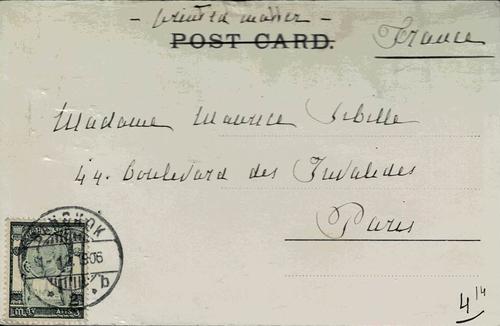 - printed matter -
POST CARD.
France
Madame Maurice Sibille
44. Boulevard des Invalides
Paris
BANGKOK
1906
b
2
4 14